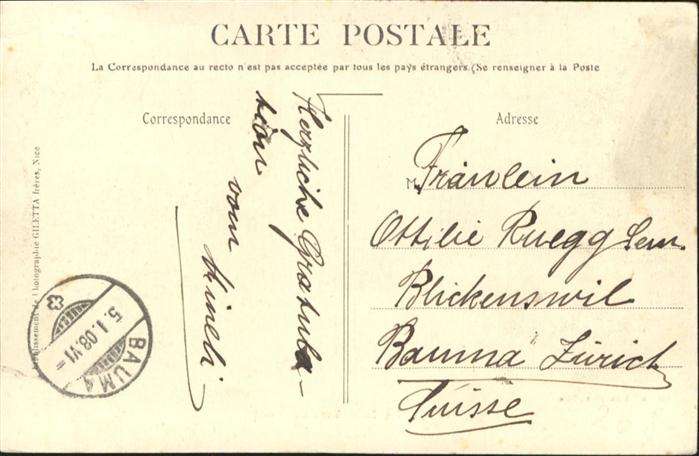 CARTE POSTALE
La Correspondance au recto n'est pas acceptée par tous les pays étrangers. (Se renseigner à la Poste
Correspondance
Adresse
Herzliche Gratula-
tion
vom
M
Fräulein
Ottilie Ruegg Sem.
Blickenswil
Bauma Zürich
Suisse
BAUMA
5.I.08.VI
GILETTA frères, Nice